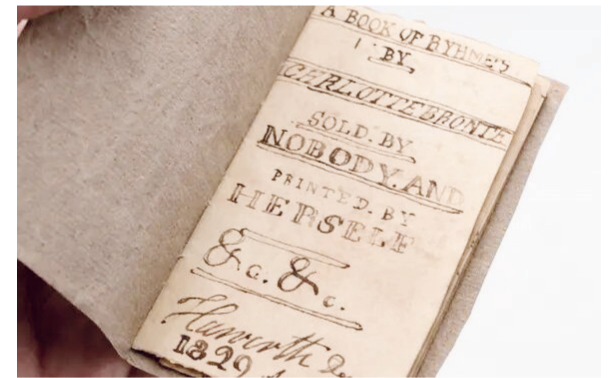 A BOOK OF RYHMES
BY
CHARLOTTE BRONTE
SOLD. BY
NOBODY. AND
PRINTED. BY
HERSELF
&c. &c.
Haworth
1829